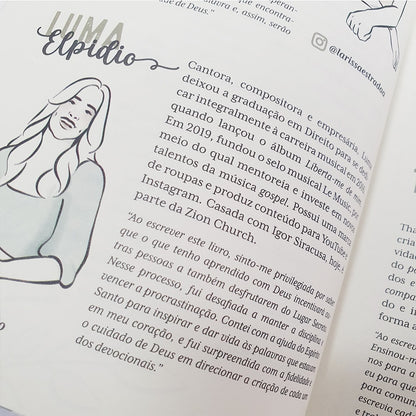 que encontra-
avra e, assim, serão
de de Deus."
@larissaestradan
LUMA
Elpídio
Cantora, compositora e empresária, Luma
deixou a graduação em Direito para se dedi-
car integralmente à carreira musical em 2016,
quando lançou o álbum Liberta-me de mim.
Em 2019, fundou o selo musical Le Music, por
meio do qual mentoreia e investe em novos
talentos da música gospel. Possui uma marca
de roupas e produz conteúdo para YouTube e
Instagram. Casada com Igor Siracusa, hoje é
parte da Zion Church.
"Ao escrever este livro, sinto-me privilegiada por saber
que o que tenho aprendido com Deus incentivará ou-
tras pessoas a também desfrutarem do Lugar Secreto.
Nesse processo, fui desafiada a manter a disciplina e
vencer a procrastinação. Contei com a ajuda do Espírito
Santo para inspirar e dar vida às palavras que estavam
em meu coração, e fui surpreendida com a fidelidade e
o cuidado de Deus em direcionar a criação de cada um
dos devocionais."
"Ao escrever
Ensinou-me
nos para a
eu para que
para comuni
escrevia cada